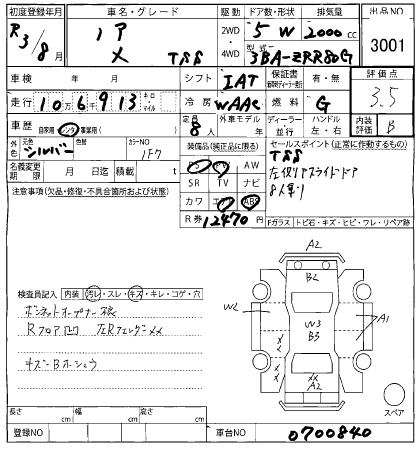 初度登録年月
R3/8月
車名・グレード
ノア
TSS
駆動
2WD
4WD
ドア数・形状
5 W
排気量
2000 cc
型式
3BA-ZRR80G
出品NO
3001
車検 年 月
シフト
IAT
保証書
有・無
評価点
3.5
走行
106913
キロ
マイル
冷房
WAAC
燃料
G
車歴
自家用 レンタ 事業用( )
定員
8人
外車モデル
年
ディーラー
並行
ハンドル
左・右
内装
評価
B
外色
元色
シルバー
色替
カラーNO
1F7
装備品(純正品に限る)
PS PW AW
SR TV ナビ
カワ エアB ABS
R券 12470円
セールスポイント(正常に作動するもの)
TSS
左パワースライドドア
8人乗り
名義変更
期限
月 日迄
積載 t
注意事項(欠品・修復・不具合箇所および状態)
Fガラス トビ石・キズ・ヒビ・ワレ・リペア跡
検査員記入
内装 汚レ・スレ・キズ・キレ・コゲ・穴
ボンネットオープナー
Rフロア凹 左Rフェンダーメメ
キズ-Bホシュウ
A2
B2
W2
W3
B3
A1
メメ
メメ
A2
スペア
長さ cm
幅 cm
高さ cm
登録NO
車台NO
0700840